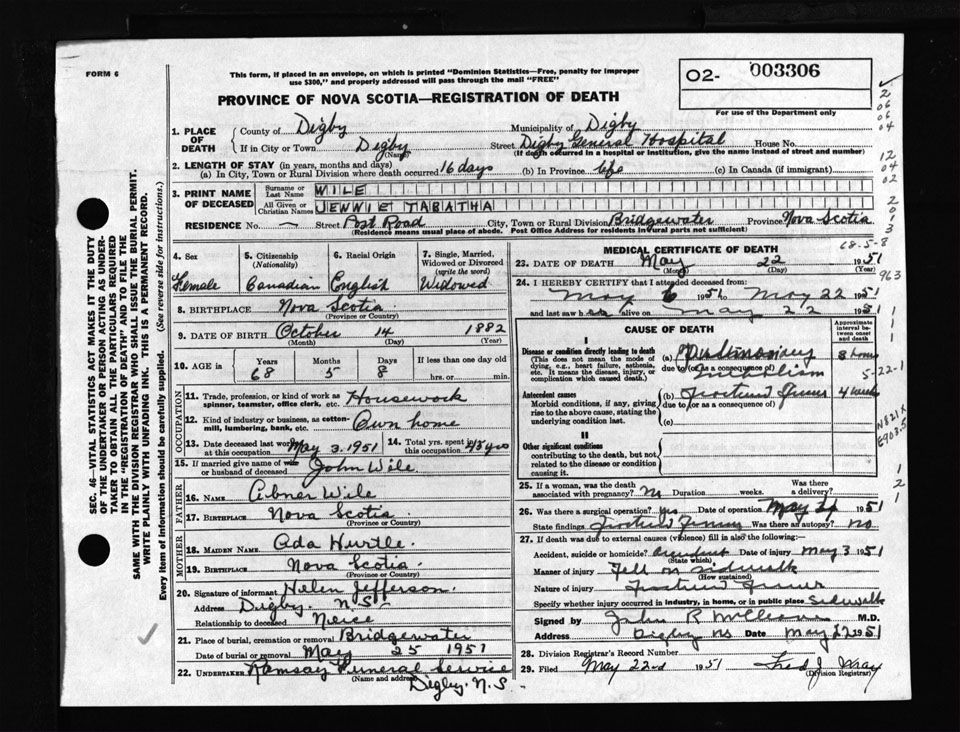 FORM 6
This form, if placed in an envelope, on which is printed "Dominion Statistics—Free, penalty for improper
use $300," and properly addressed will pass through the mail "FREE"
02- 003306
For use of the Department only
PROVINCE OF NOVA SCOTIA—REGISTRATION OF DEATH
1. PLACE OF DEATH
County of Digby Municipality of Digby
If in City or Town Digby (Name) Street Digby General Hospital House No.
(If death occurred in a hospital or institution, give the name instead of street and number)
2. LENGTH OF STAY (in years, months and days)
(a) In City, Town or Rural Division where death occurred 16 days (b) In Province life (c) In Canada (if immigrant)
3. PRINT NAME OF DECEASED
Surname or Last Name WILE
All Given or Christian Names JENNIE TABATHA
RESIDENCE No. — Street Post Road City, Town or Rural Division Bridgewater Province Nova Scotia
(Residence means usual place of abode. Post Office Address for residents in rural parts not sufficient)
4. Sex
Female
5. Citizenship
(Nationality)
Canadian
6. Racial Origin
English
7. Single, Married,
Widowed or Divorced
(write the word)
Widowed
8. BIRTHPLACE Nova Scotia
(Province or Country)
9. DATE OF BIRTH October 14 1882
(Month) (Day) (Year)
10. AGE in
Years Months Days If less than one day old
68 5 8 hrs. or min.
OCCUPATION
11. Trade, profession, or kind of work as
spinner, teamster, office clerk, etc. Housework
12. Kind of industry or business, as cotton-
mill, lumbering, bank, etc. Own home
13. Date deceased last worked
at this occupation May 3 1951
14. Total yrs. spent in
this occupation 45 yrs
15. If married give name of wife
or husband of deceased John Wile
FATHER
16. NAME Abner Wile
17. BIRTHPLACE Nova Scotia
(Province or Country)
MOTHER
18. MAIDEN NAME Ada Hurtle.
19. BIRTHPLACE Nova Scotia
(Province or Country)
20. Signature of informant Helen Jefferson.
Address Digby. N.S.
Relationship to deceased Neice
21. Place of burial, cremation or removal Bridgewater
Date of burial or removal May 25 1951
22. UNDERTAKER Ramsay Funeral Service
(Name and address) Digby. N.S.
MEDICAL CERTIFICATE OF DEATH
68-5-8
23. DATE OF DEATH May 22 1951
(Month) (Day) (Year)
24. I HEREBY CERTIFY that I attended deceased from:
May 6 1951 to May 22 1951
and last saw her alive on May 22 1951
CAUSE OF DEATH
Approximate
interval be-
tween onset
and death
I
Disease or condition directly leading to death
(This does not mean the mode of
dying, e.g., heart failure, asthenia,
etc. It means the disease, injury, or
complication which caused death.)
(a) Pulmonary 8 hours
due to (or as a consequence of)
Embolism 5-22-1
Antecedent causes
Morbid conditions, if any, giving
rise to the above cause, stating the
underlying condition last.
(b) Fractured Femur 4 weeks
due to (or as a consequence of)
(c)
II
Other significant conditions
contributing to the death, but not
related to the disease or condition
causing it.
25. If a woman, was the death
associated with pregnancy? No Duration weeks. Was there
a delivery?
26. Was there a surgical operation? yes Date of operation May 1951
State findings Fractured Femur Was there an autopsy? no
27. If death was due to external causes (violence) fill in also the following:—
Accident, suicide or homicide? accident Date of injury May 3 1951
(State which)
Manner of injury Fell on sidewalk
(How sustained)
Nature of injury Fractured Femur
Specify whether injury occurred in industry, in home, or in public place sidewalk
Signed by John R M.D.
Address Digby NS Date May 22 1951
28. Division Registrar's Record Number
29. Filed May 22nd 1951 Fred J.
(Division Registrar)
SEC. 46—VITAL STATISTICS ACT MAKES IT THE DUTY
OF THE UNDERTAKER OR PERSON ACTING AS UNDER-
TAKER TO OBTAIN ALL THE PARTICULARS REQUIRED
IN THE "REGISTRATION OF DEATH" AND TO FILE THE
SAME WITH THE DIVISION REGISTRAR WHO SHALL ISSUE THE BURIAL PERMIT.
WRITE PLAINLY WITH UNFADING INK. THIS IS A PERMANENT RECORD.
Every item of information should be carefully supplied. (See reverse side for instructions.)
2
06
06
04
12
04
02
2
0
1
3
963
1
1
1
N821X
E903.5
1
2
1